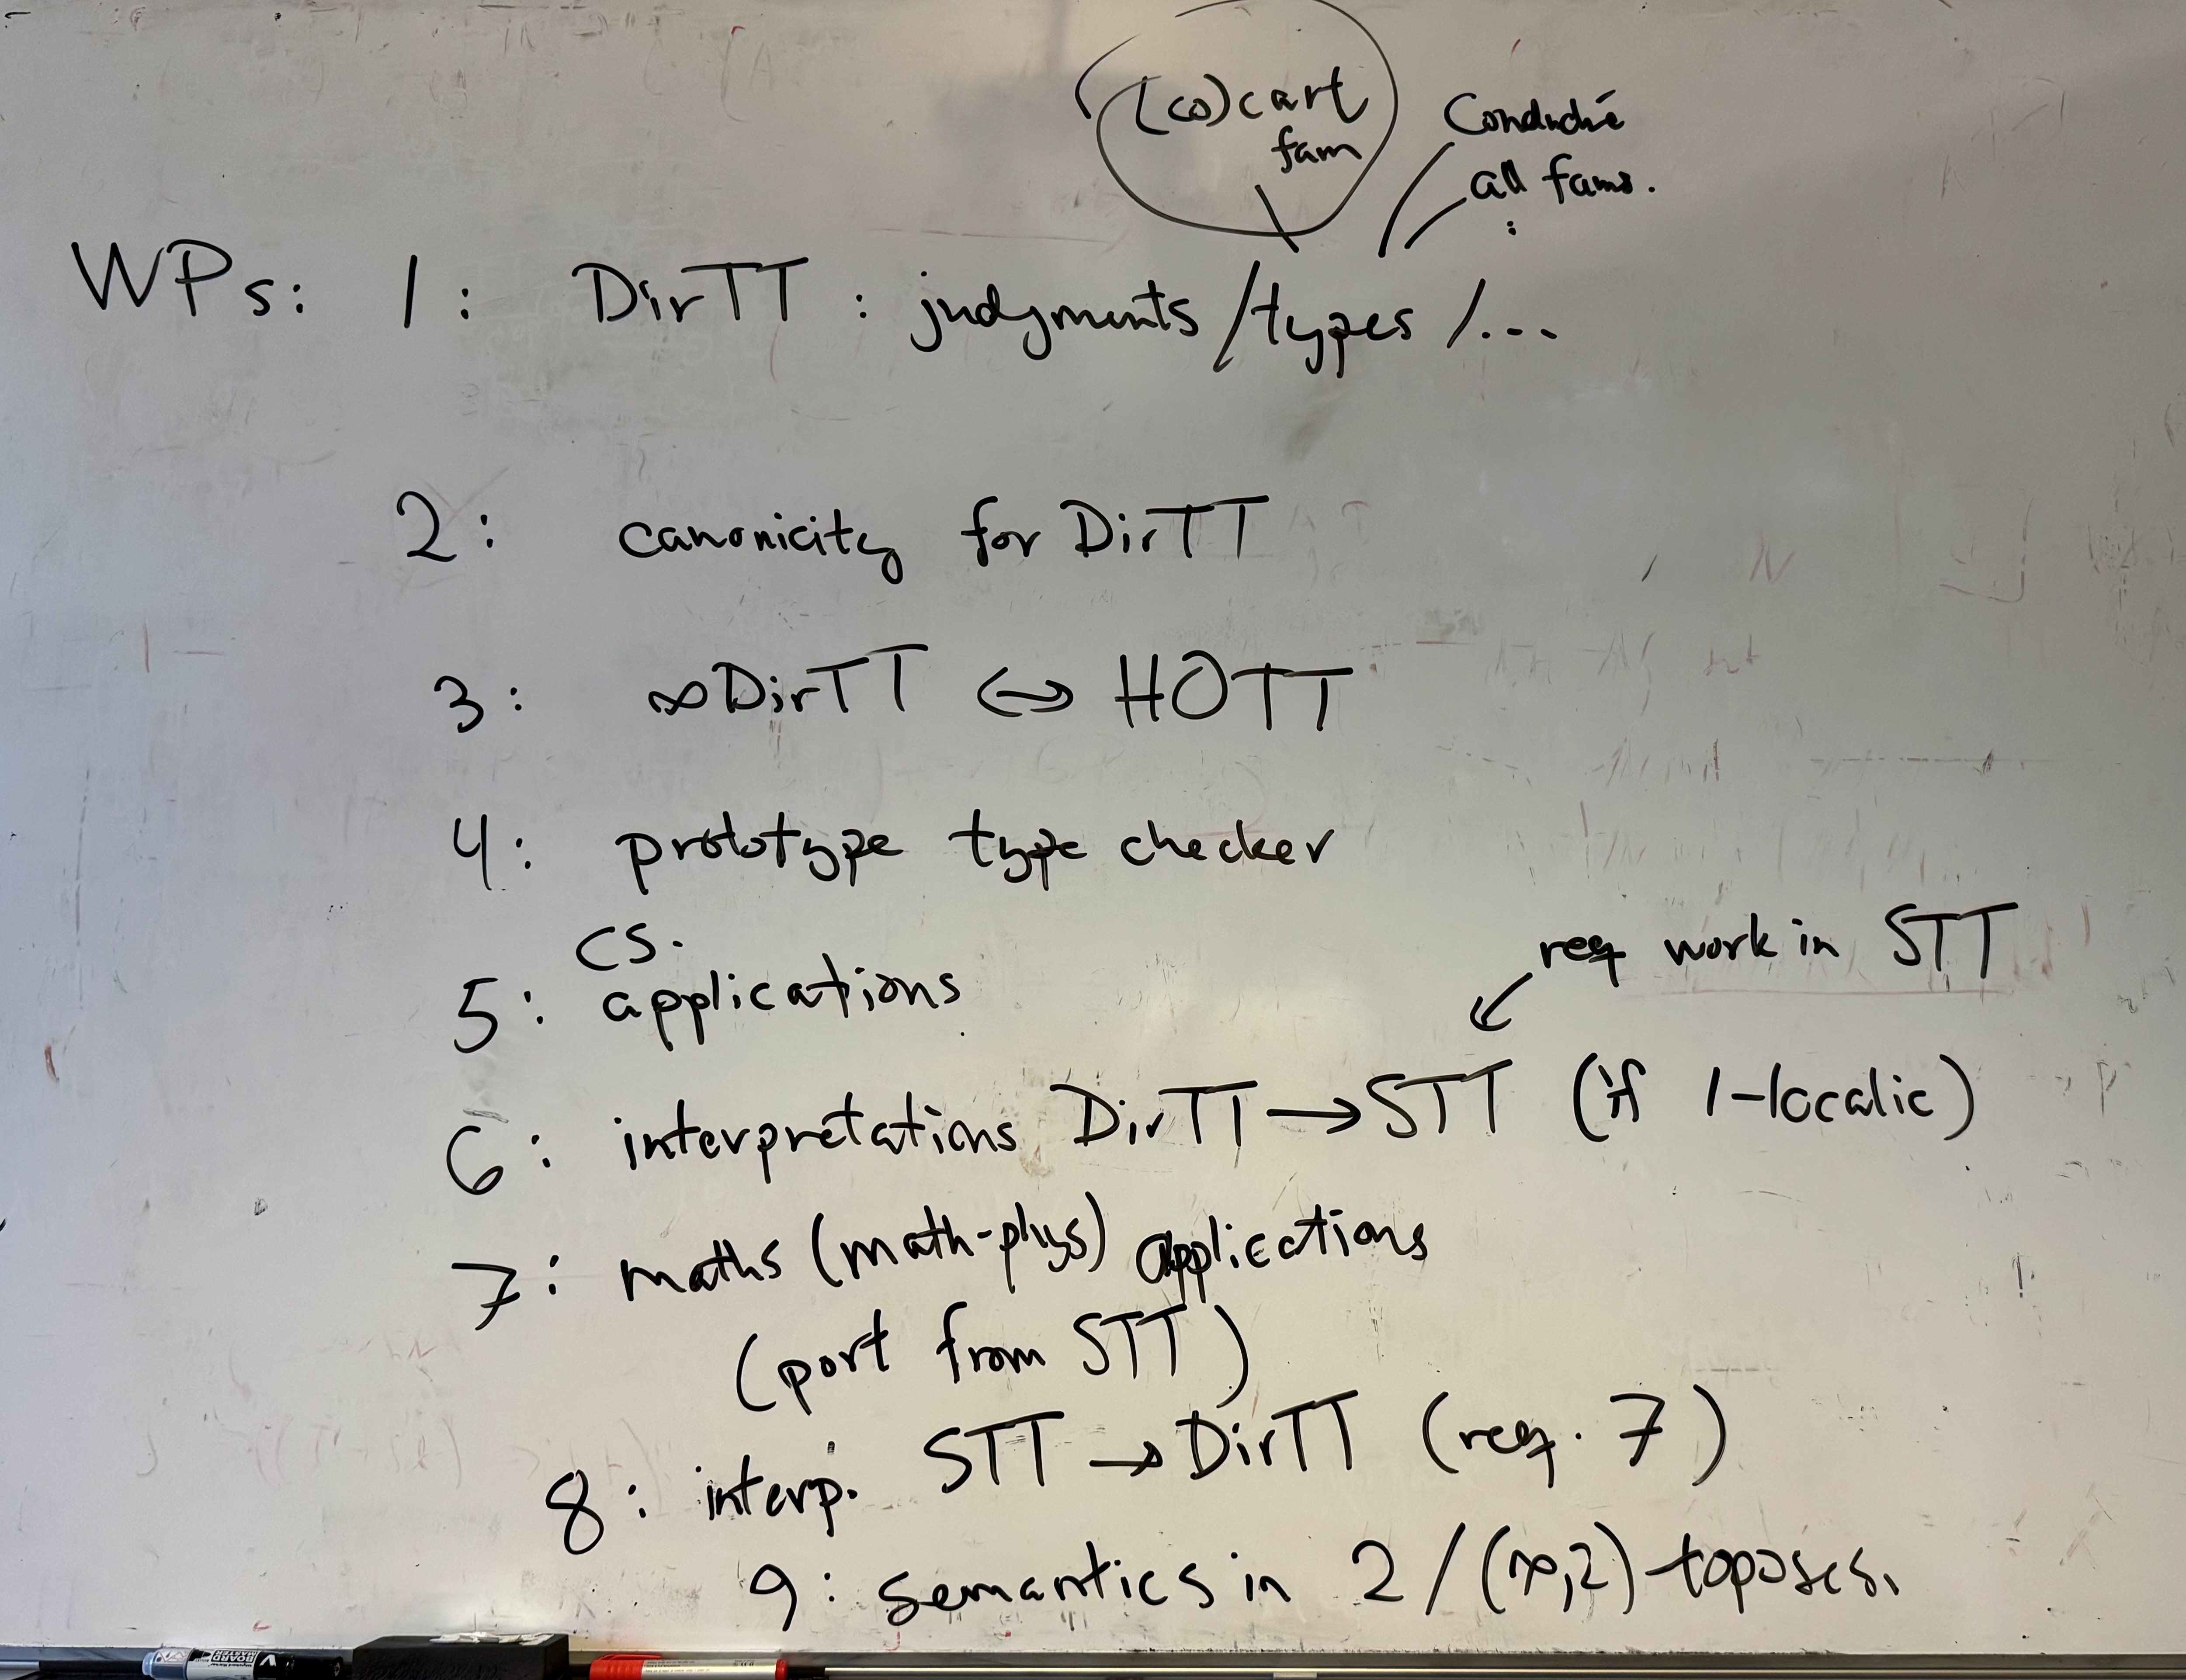 (co)cart
fam
Conduché
all fams.
:
WPs: 1: DirTT : judgments/types/...
2: canonicity for DirTT
3: ∞DirTT ↔ HOTT
4: prototype type checker
CS.
5: applications
req work in STT
6: interpretations DirTT → STT (if 1-localic)
7: maths (math-phys) applications
(port from STT)
8: interp. STT → DirTT (req. 7)
9: semantics in 2/(∞,2)-toposes.